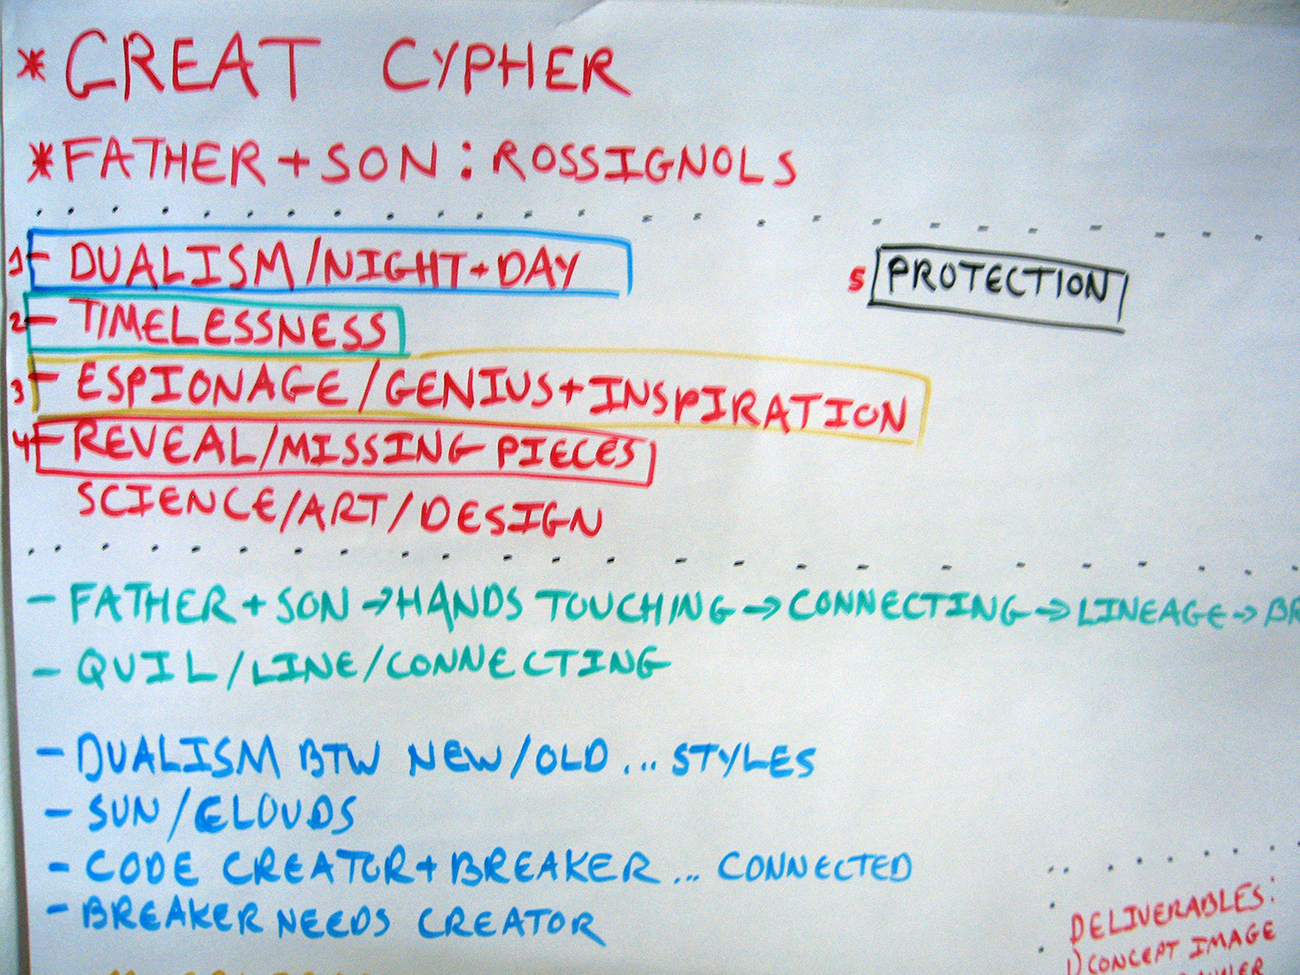 * GREAT CYPHER
* FATHER + SON : ROSSIGNOLS
1 - DUALISM/NIGHT + DAY
5 PROTECTION
2 - TIMELESSNESS
3 - ESPIONAGE/GENIUS + INSPIRATION
4 - REVEAL/MISSING PIECES
SCIENCE/ART/DESIGN
- FATHER + SON → HANDS TOUCHING → CONNECTING → LINEAGE → BR
- QUIL/LINE/CONNECTING
- DUALISM BTW NEW/OLD ... STYLES
- SUN/CLOUDS
- CODE CREATOR + BREAKER ... CONNECTED
- BREAKER NEEDS CREATOR
DELIVERABLES:
1) CONCEPT IMAGE